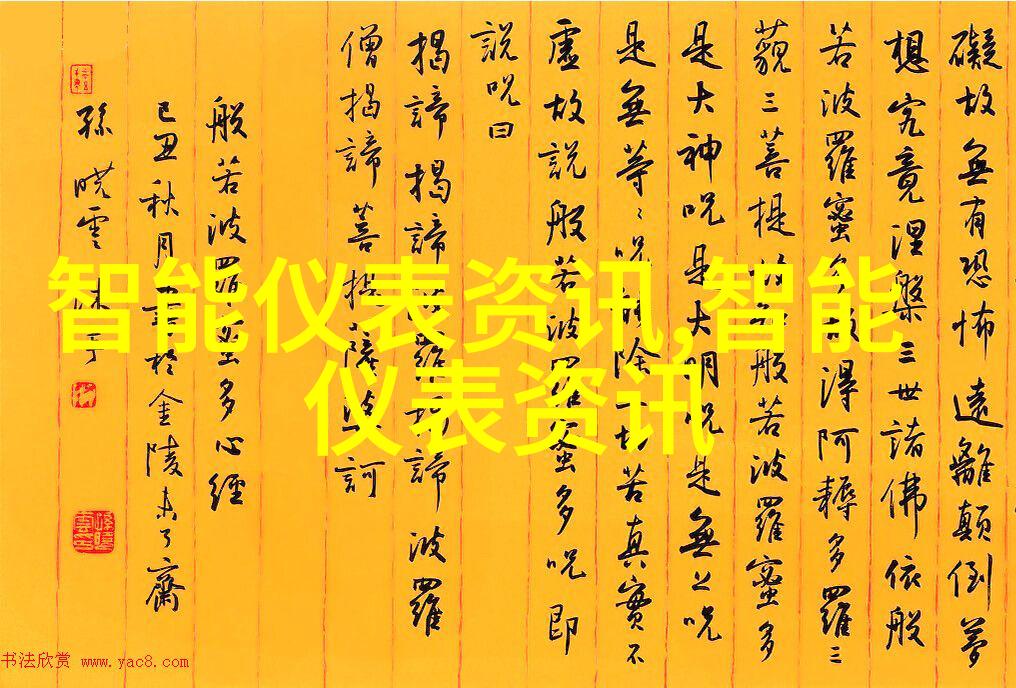 礙故無有恐怖遠離顛倒夢
想究竟涅槃三世諸佛依般
若波羅蜜多故得阿耨多羅三
藐三菩提故知般若波羅蜜多
是大神呪是大明呪是無上呪
是無等〻呪能除一切苦真實不
虛故說般若波羅蜜多呪即
說呪曰
揭諦揭諦波羅揭諦波羅
僧揭諦菩提薩婆訶
般若波羅蜜多心經
己丑秋月書於金陵未了齋
孫曉雲沐手
智能仪表资讯,智能
仪表资讯
书法欣赏 www.yac8.com